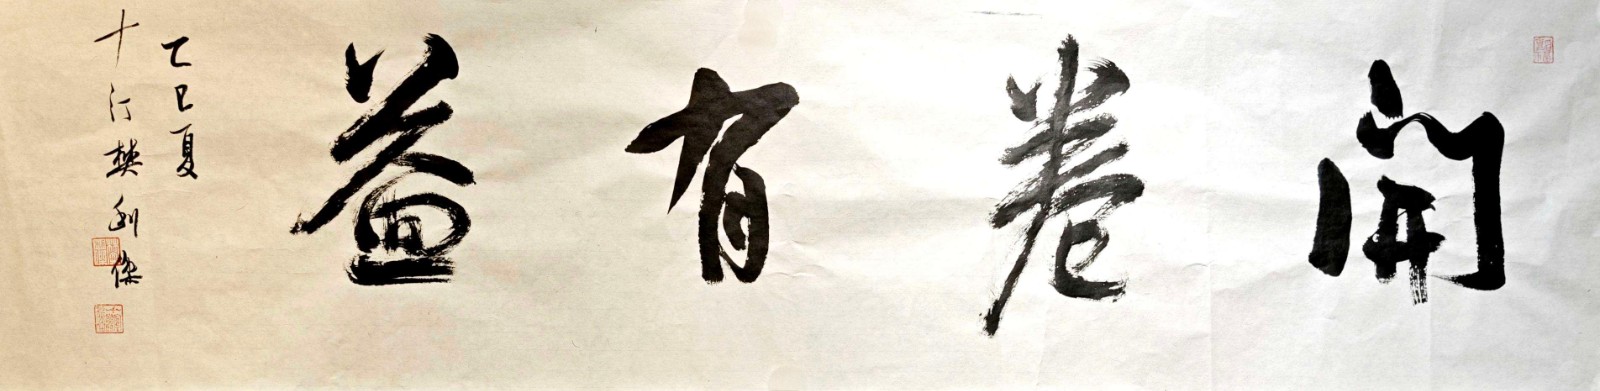 開卷有益
乙巳夏
十汀樊利傑